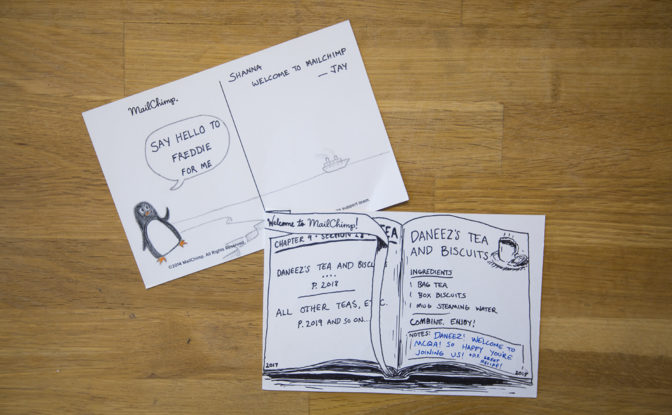 MailChimp.
SAY HELLO TO
FREDDIE
FOR ME
©2014 MailChimp. All Rights Reserved.
SHANNA
WELCOME TO MAILCHIMP
— JAY
support team
Welcome to MailChimp!
CHAPTER 9 • 
DANEEZ'S TEA AND BISC
....
P. 2018
ALL OTHER TEAS, ETC.
P. 2019 AND SO ON...
2017
TEA
DANEEZ'S TEA
AND BISCUITS
INGREDIENTS
1 BAG TEA
1 BOX BISCUITS
1 MUG STEAMING WATER
COMBINE. ENJOY!
NOTES: DANEEZ! WELCOME TO
MCQA! SO HAPPY YOU'RE
JOINING US!
2018